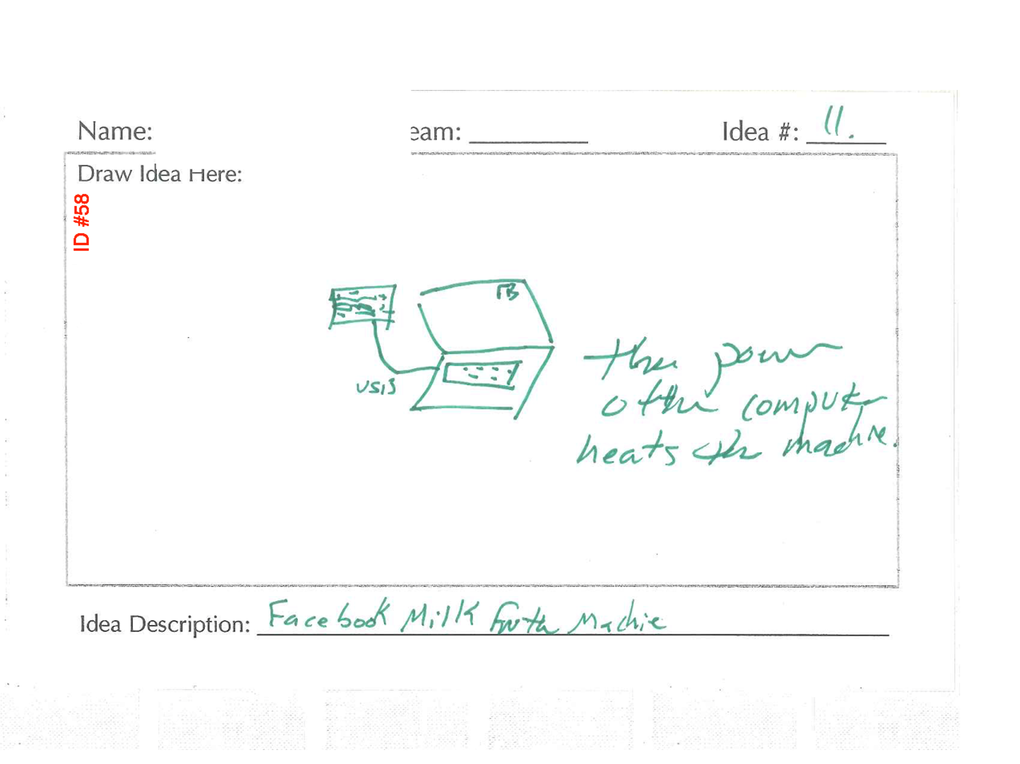 Name:
eam:
Idea #: 11.
Draw Idea Here:
ID #58
FB
USB
the power
o the computer
heats the machie.
Idea Description: Facebook Milk Froth Machie